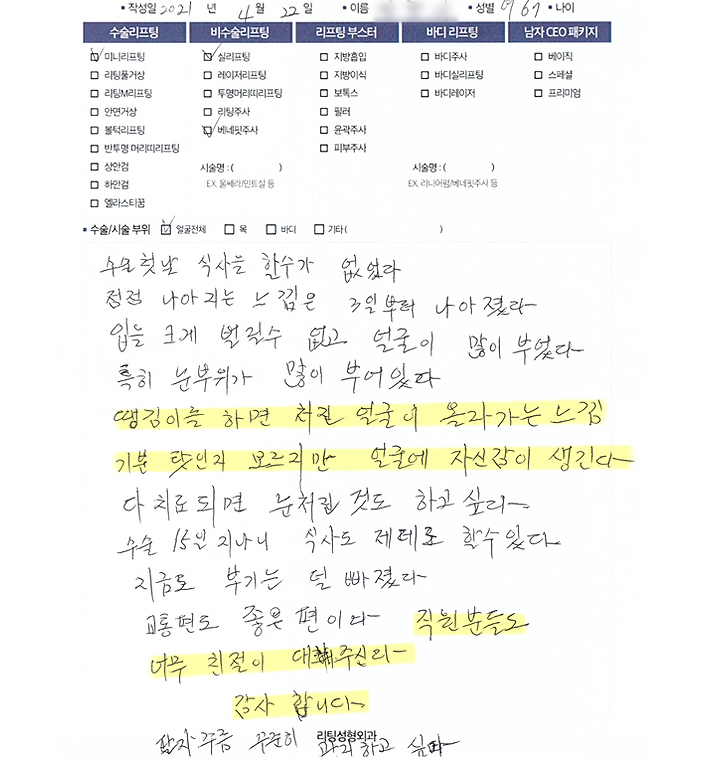 • 작성일 2021 년 4 월 22 일 • 이름 • 성별 여 67 • 나이
수술리프팅 비수술리프팅 리프팅 부스터 바디 리프팅 남자 CEO 패키지
미니리프팅 실리프팅 지방흡입 바디주사 베이직
리팅풀거상 레이저리프팅 지방이식 바디실리프팅 스페셜
리팅M리프팅 투명머리띠리프팅 보톡스 바디레이저 프리미엄
안면거상 리팅주사 필러
볼턱리프팅 베네핏주사 윤곽주사
반투명 머리띠리프팅 피부주사
상안검 시술명 : ( ) 시술명 : ( )
하안검 EX. 울쎄라/민트실 등 EX. 리니어펌/베네핏주사 등
엘라스티꿈
• 수술/시술 부위 얼굴전체 목 바디 기타 ( )
수술 첫날 식사를 할수가 없었다
점점 나아지는 느낌은 3일부터 나아졌다
입을 크게 벌릴수 없고 얼굴이 많이 부었다
특히 눈부위가 많이 부어있다
땡김이를 하면 처진 얼굴이 올라가는 느낌
기분 탓인지 모르지만 얼굴에 자신감이 생긴다
다 치료되면 눈처짐 것도 하고싶다
수술 15일 지나니 식사도 제데로 할수있다
지금도 부기는 덜 빠졌다
교통편도 좋은 편이다 직원분들도
너무 친절이 대해주신다
감사 합니다
꾸준히 관리하고 싶다
리팅성형외과